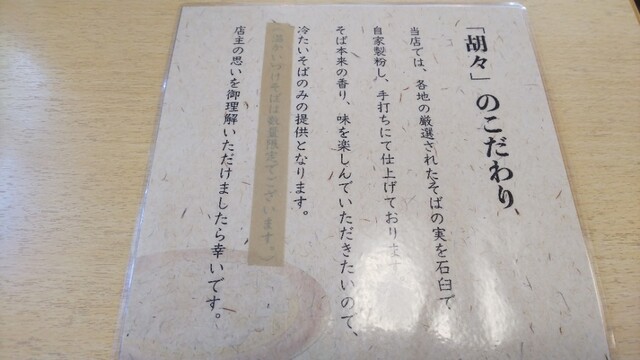 「胡々」のこだわり、
当店では、各地の厳選されたそばの実を石臼で
自家製粉し、手打ちにて仕上げております
そば本来の香り、味を楽しんでいただきたいので、
冷たいそばのみの提供となります。
(温かいつけそばは数量限定でございます。)
店主の思いを御理解いただけましたら幸いです。